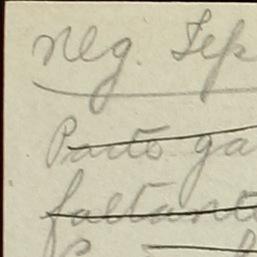 Neg. Sep
Parto ga
faltante